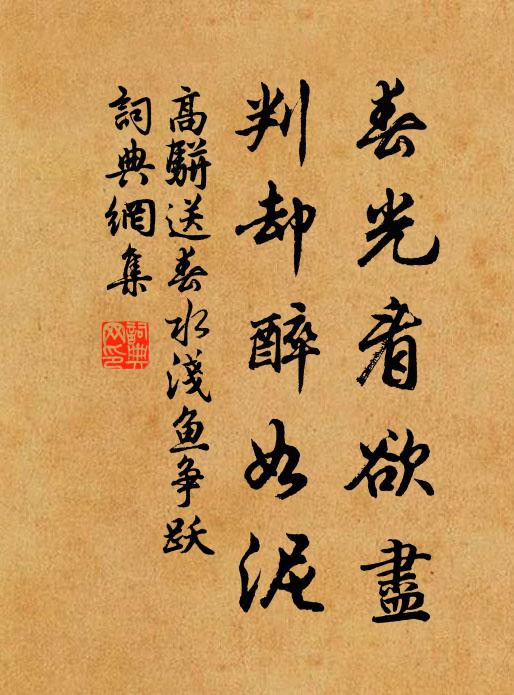 春光看欲盡
判却醉如泥
高駢送春水淺魚争躍
詞典網集
詞典网印